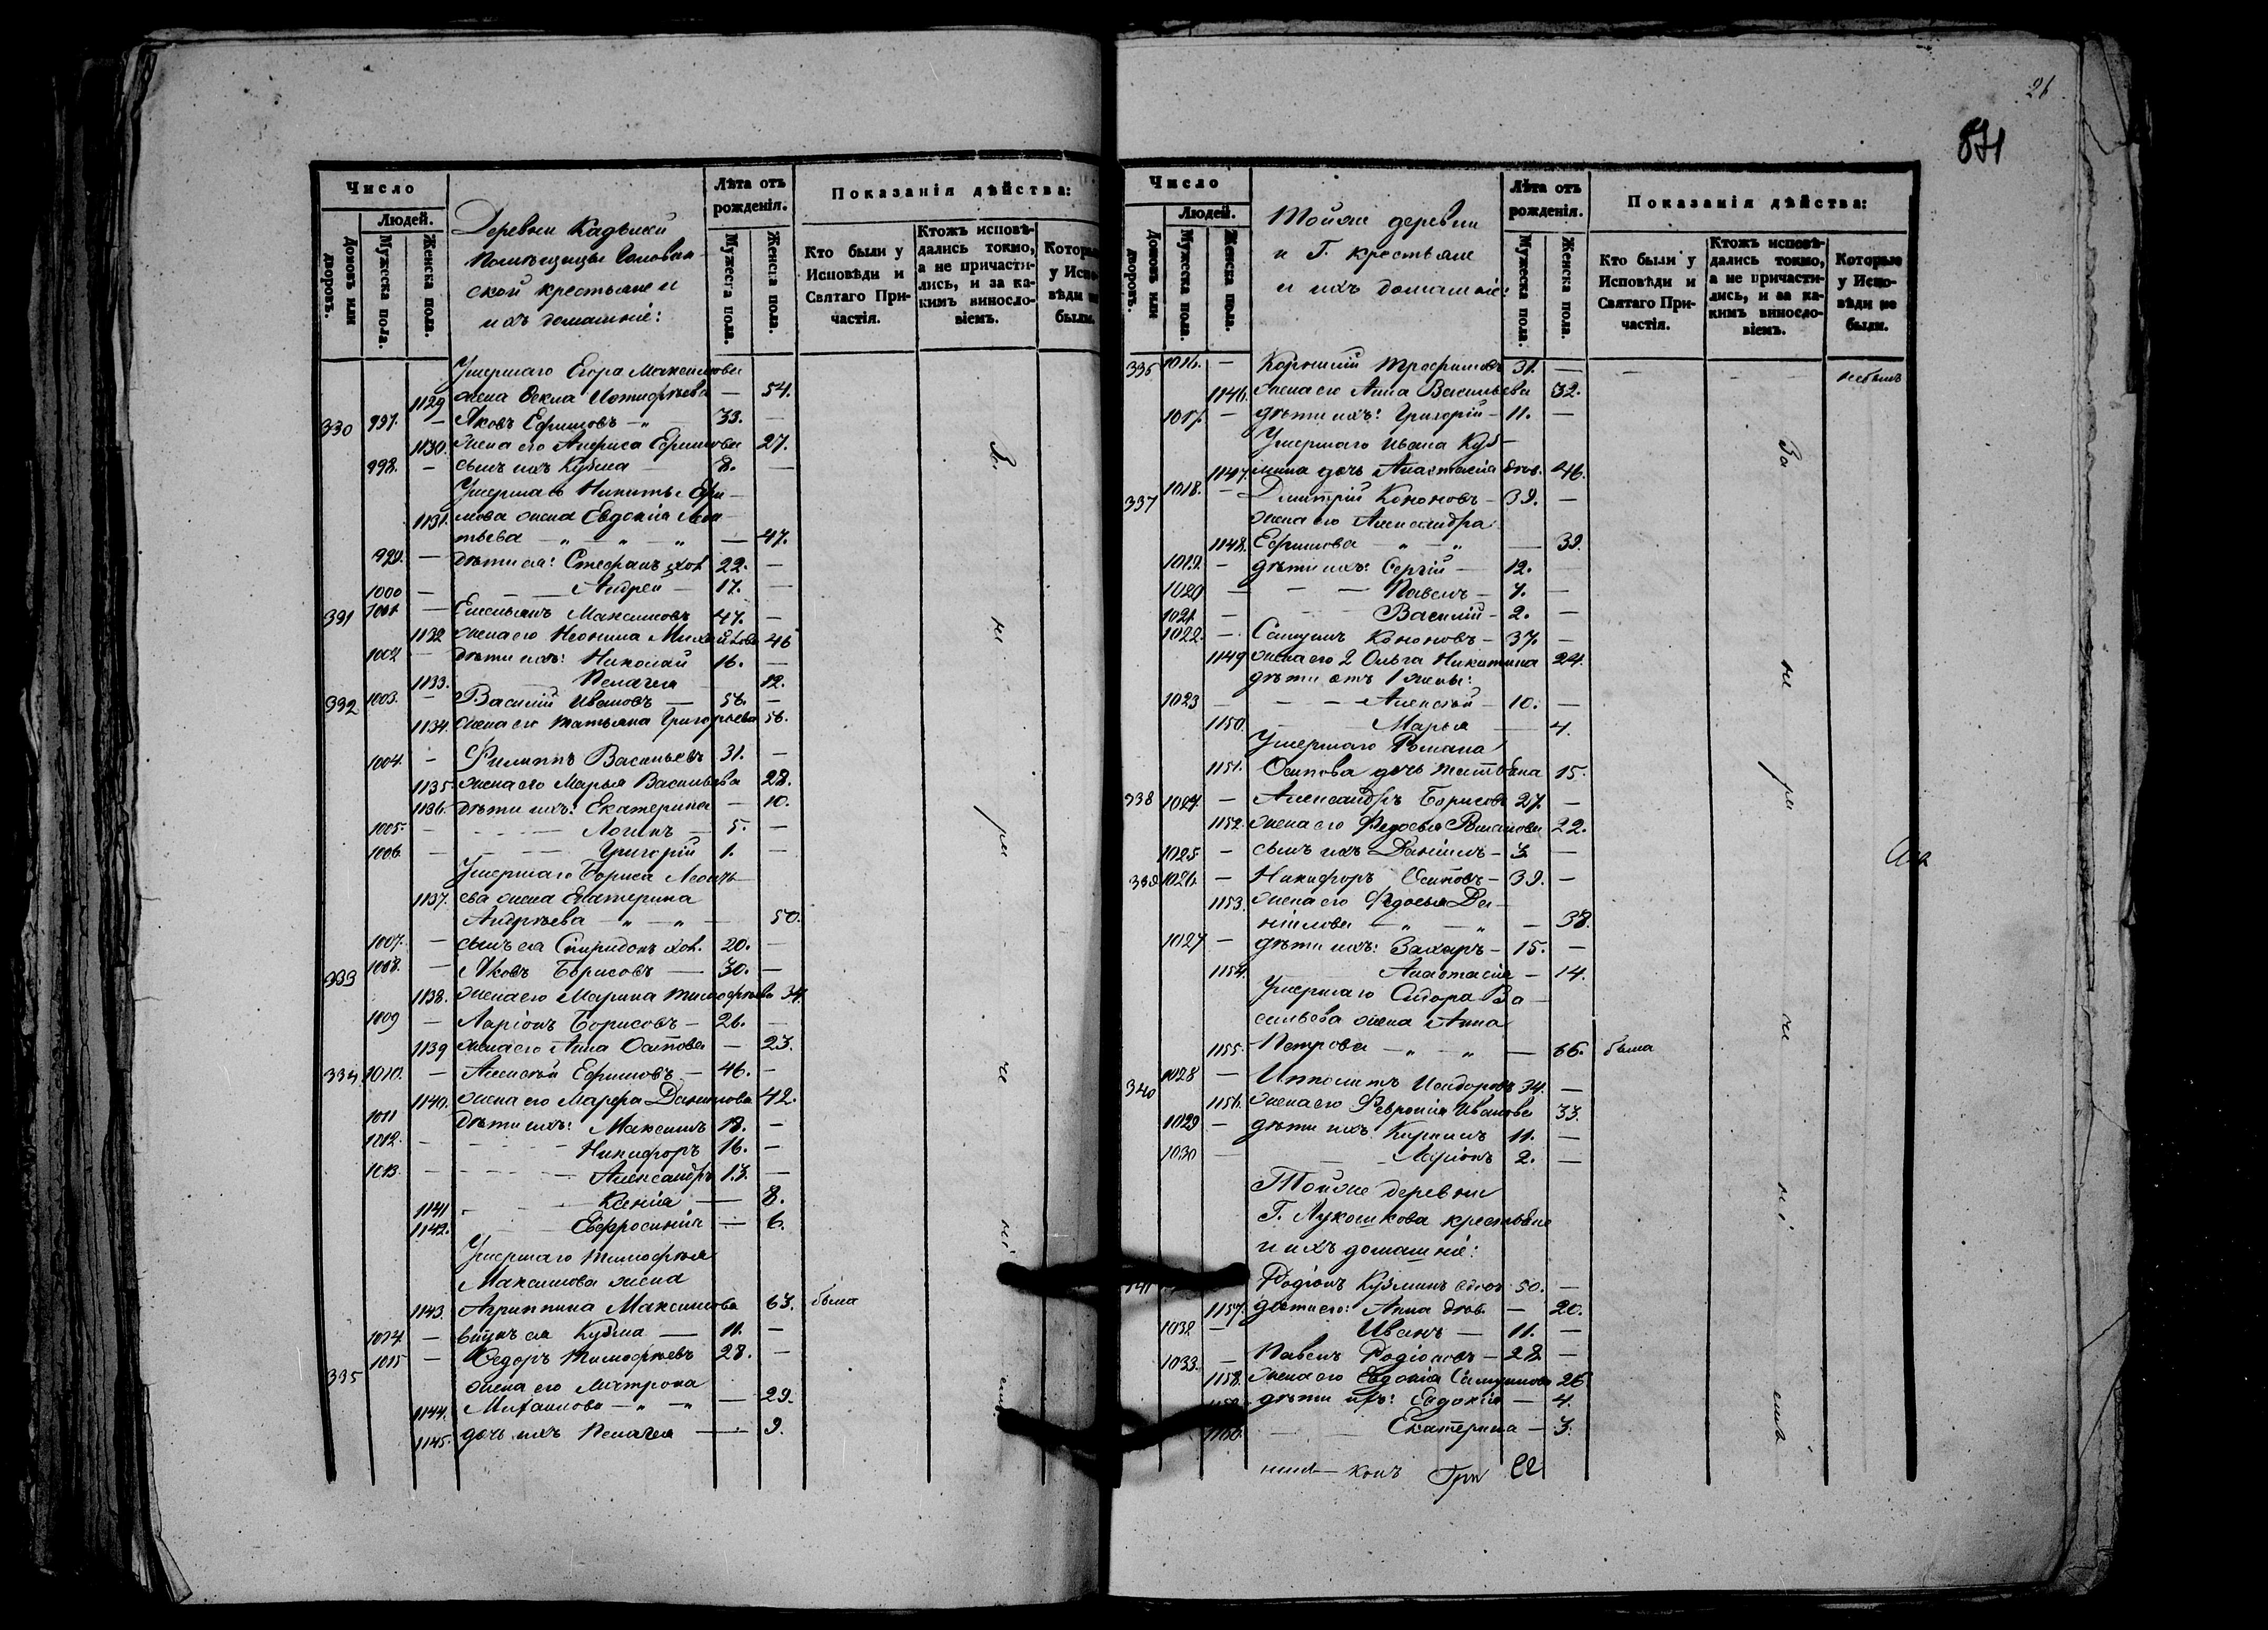 Число
Людей.
Домовъ или дворовъ.
Мужеска пола.
Женска пола.
Деревни Кадъней
помѣщицы
ской крестьяне и
ихъ домашніе:
Лѣта отъ рожденія.
Мужеска пола.
Женска пола.
Показанія дѣйства:
Кто были у Исповѣди и Святаго Причастія.
Ктожъ исповѣдались токмо, а не причастились, и за какимъ винословіемъ.
Которые у Исповѣди не были.
Умершаго Егора Максимова
1129 жена Ѳекла — 54.
330 997. — Яковъ Ефимовъ — „ 33. —
1130. жена его Анфиса Ефимова 27.
998. — сынъ ихъ Кузма — 8. —
Умершаго Никиты Ефи-
1131. мова жена Евдокія
тьева — „ — „ — „ — 47.
999. — дѣти ея: Стефанъ хол. 22. —
1000 — — Андрей — 17. —
331 1001. — Емельянъ Максимовъ 47. —
1132 жена его Неонила Михайлова 46
1002 — дѣти ихъ: Николай 16. —
1133. — Пелагея 12.
332 1003. — Василій Ивановъ — 56. —
1134. жена его Татьяна Григорьева 56.
1004. — Филиппъ Васильевъ 31. —
1135. жена его Марья Васильева 28.
1136. дѣти ихъ: Екатерина — 10.
1005. — — — — Логинъ — 5. —
1006. — — — — Григорій 1. —
Умершаго Бориса Леонть-
1137. ева жена Екатерина
Андрѣева — „ — „ — 50.
1007. — сынъ ея Спиридонъ хол. 20. —
333 1008. — Яковъ Борисовъ — 30. —
1138. жена его Марина Тимофѣева 34.
1009 — Ларіонъ Борисовъ — 26. —
1139 жена его Анна Осипова — 23.
334. 1010. — Алексѣй Ефимовъ — 46. —
1140. жена его Марфа Данилова 42.
1011 дѣти ихъ: Максимъ 18. —
1012. — — — Никифоръ 16. —
1013. — — — Александръ 13. —
1141 — — Ксенія — 8.
1142. — Евфросинія — 6.
Умершаго Тимофея
Максимова жена
1143. Агриппина Максимова 63. была
1014. — внукъ ея Кузма — 11. —
335 1015 — Ѳедоръ Тимофѣевъ 28. —
жена его Матрона
1144. Михайлова — „ — „ — 29.
1145. дочь ихъ Пелагея — 9.
26
871
Число
Людей.
Домовъ или дворовъ.
Мужеска пола.
Женска пола.
Тойже деревни
и Г. крестьяне
и ихъ домашніе:
Лѣта отъ рожденія.
Мужеска пола.
Женска пола.
Показанія дѣйства:
Кто были у Исповѣди и Святаго Причастія.
Ктожъ исповѣдались токмо, а не причастились, и за какимъ винословіемъ.
Которые у Исповѣди не были.
1016. — Корнилій Трофимовъ 31. — — — небылъ
1146. жена его Анна Васильева 32.
1017. — дѣти ихъ: Григорій — 11. —
Умершаго Ивана Куз-
1147. мина дочь Анастасія дѣв. 46.
337 1018. — Дмитрій Кононовъ — 39. —
жена его Александра
1148. Ефимова „ — „ — 39.
1019. — дѣти ихъ: Сергій — 12. —
1020 — — — Павелъ — 7. —
1021. — — Василій — 2. —
1022. — Самуилъ Кононовъ — 37. —
1149 жена его 2 Ольга Никитина 24.
дѣти отъ 1 жены:
1023 — — — Алексѣй — 10. —
1150. — Марья — 4.
Умершаго Романа
1151. Осипова дочь Татьяна 15.
338 1024. — Александръ Борисовъ 27. —
1152. жена его Федосья Романова 22.
1025. — сынъ ихъ Даніилъ — 3. —
339 1026. — Никифоръ Осиповъ — 39. —
1153. жена его Федосья Да-
ніилова — „ — „ — 38.
1027 — дѣти ихъ: Захаръ — 15. —
1154. Анастасія — 14.
Умершаго Сидора Ва-
сильева жена Анна
1155. Петрова — „ — „ — 66. была
340 1028 — Ипполитъ Исидоровъ 34. —
1156. жена его Февронія Иванова 33.
1029 — дѣти ихъ Кириллъ 11. —
1030 — — Ларіонъ 2. —
Тойже деревни
Г. Лукошкова крестьяне
и ихъ домашніе:
Родіонъ Кузминъ вдов. 50. —
1157. дѣти его: Анна дѣв. — 20.
1032 — Иванъ — 11. —
1033. — Павелъ Родіоновъ — 28 —
1158. жена его Евдокія Самуилова 26
дѣти ихъ: Евдокія — 4.
1160. — — Екатерина — 3.
За не ра че ні емъ